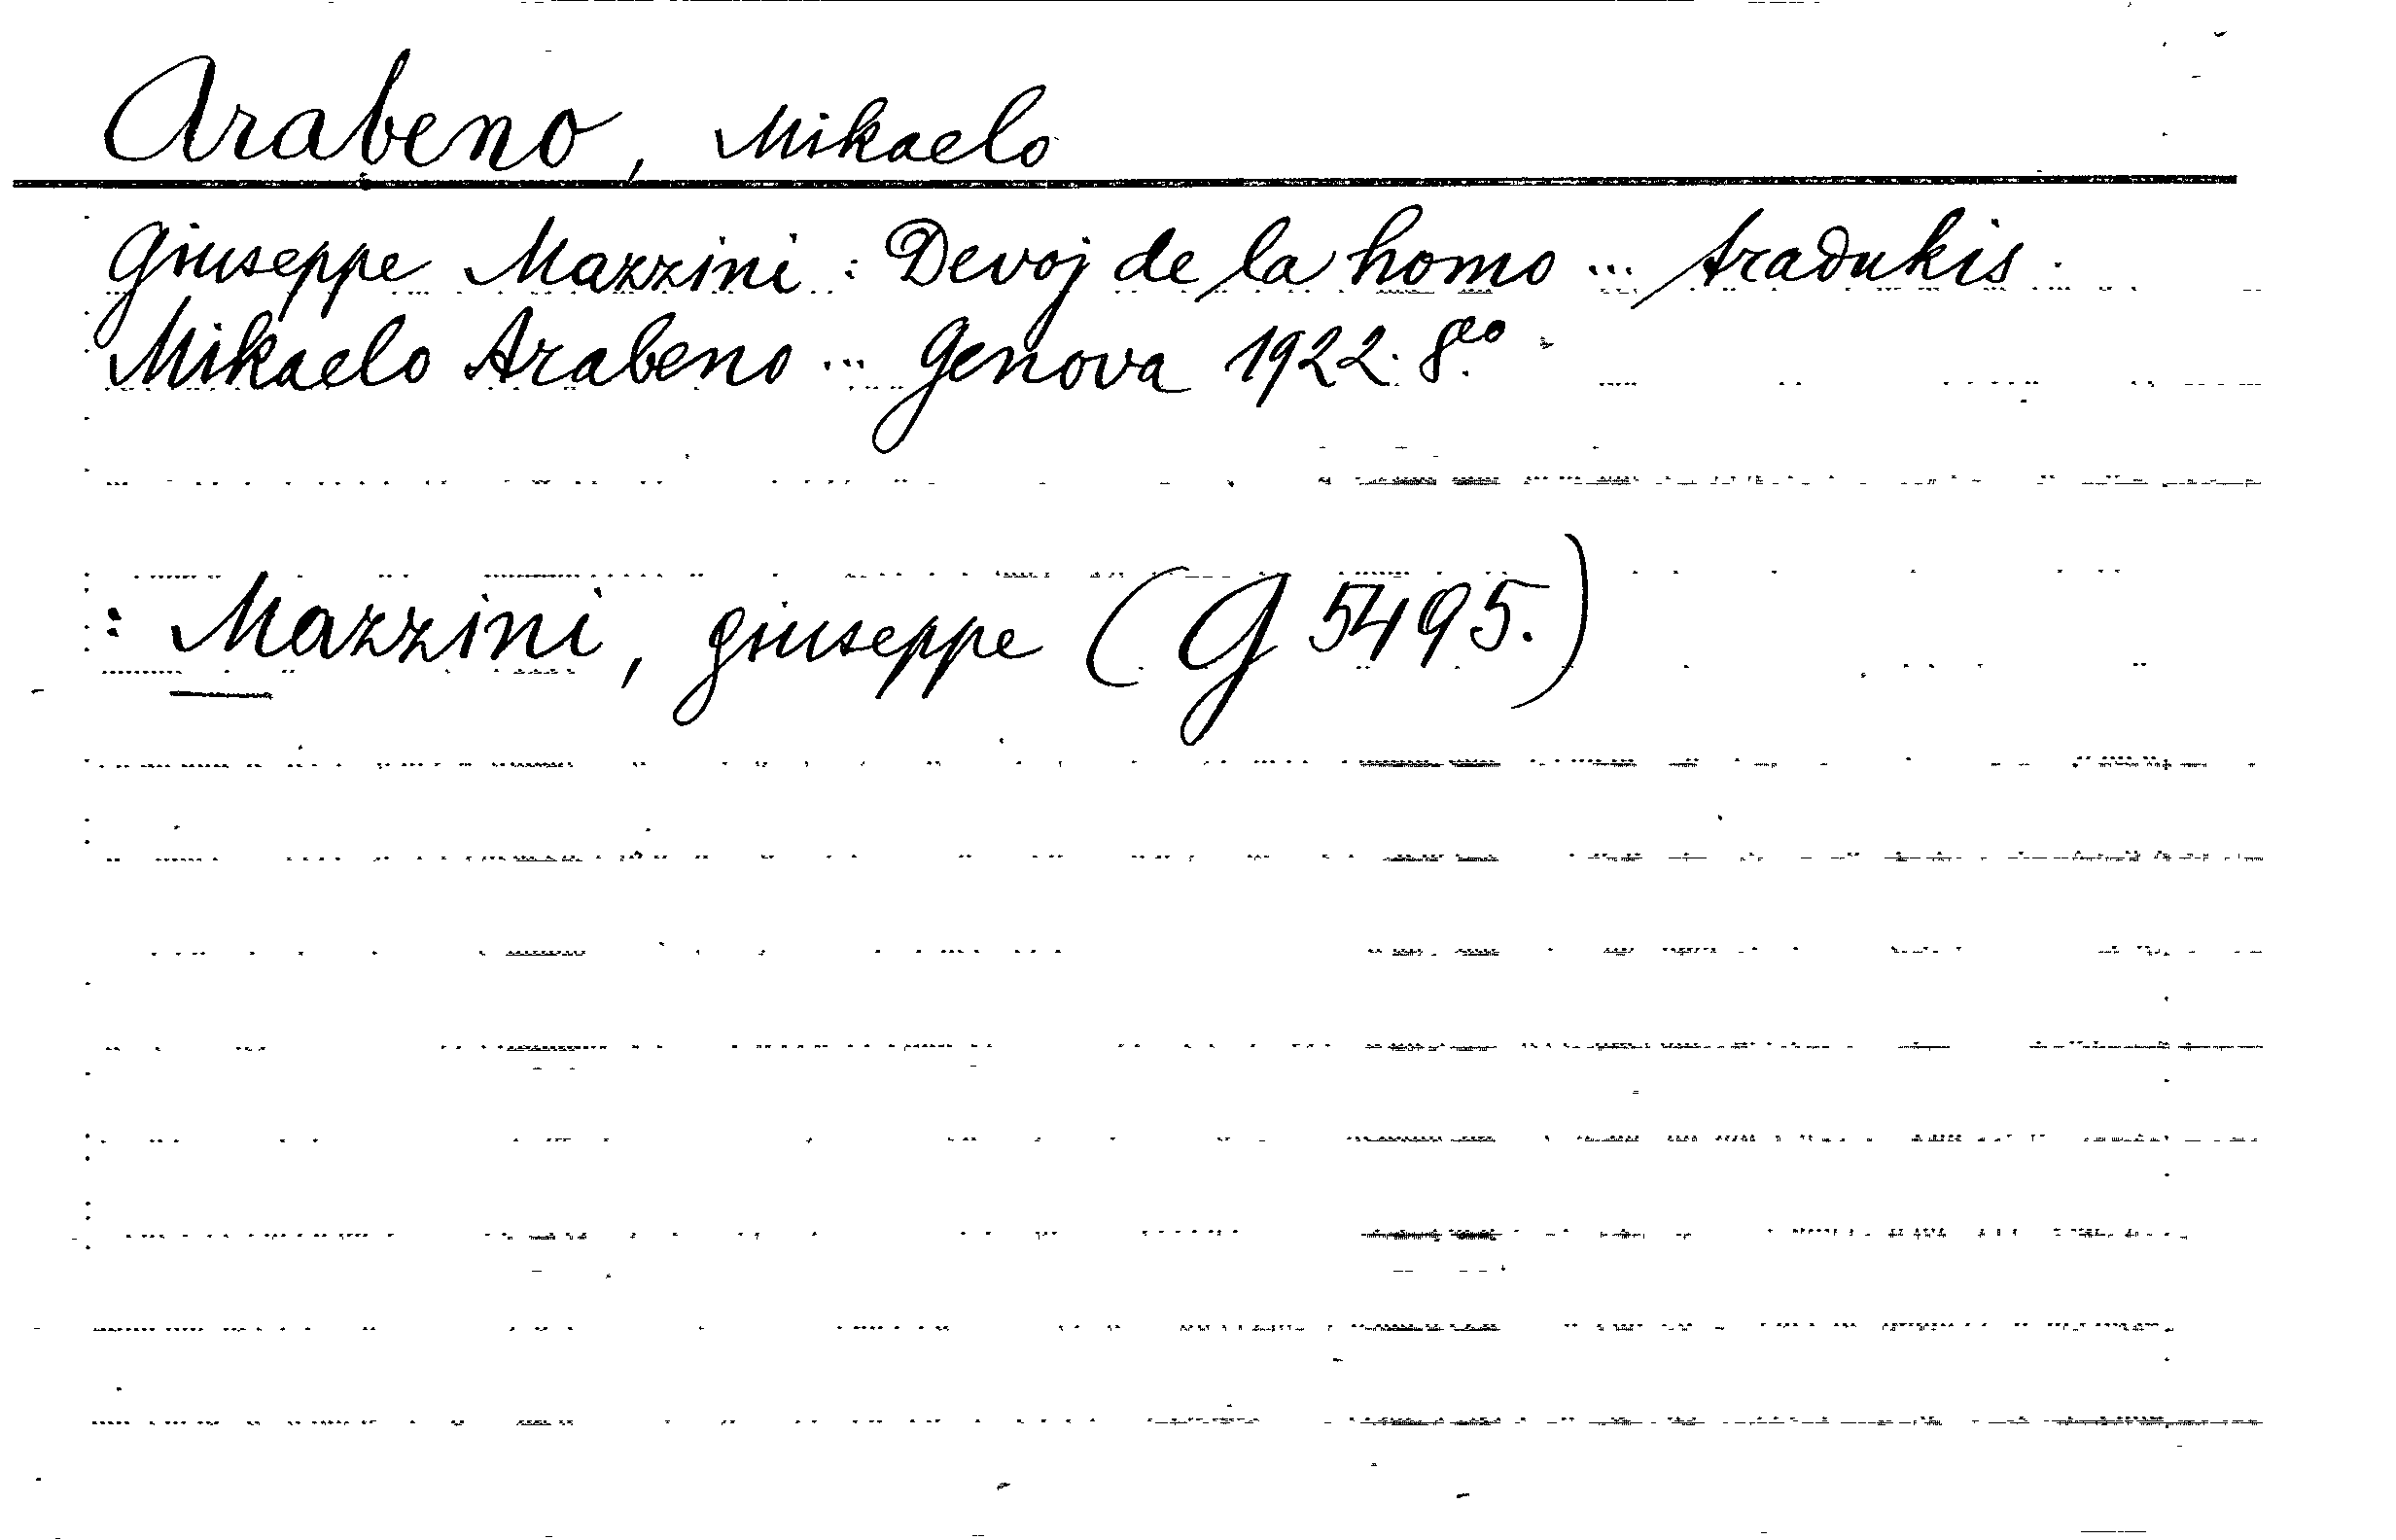 Arabeno, Mikaelo
Giuseppe Mazzini : Devoj de la homo ... tradukis
Mikaelo Arabeno ... Genova 1922. 8º.
: Mazzini, Giuseppe (G 5495.)